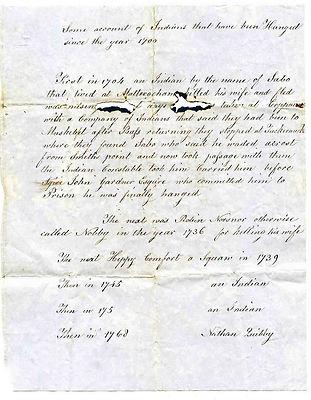 Some account of Indians that have been Hanged
since the year 1700
First in 1704 an Indian by the name of Sabo
that lived at killed his wife and fled
was taken at Coppaue
with a Company of Indians that said they had been to
Musheket after Bass returning they stopped at Tuckernuck
where they found Sabo who said he waded across
from Smiths point and now took passage with them
the Indian Constable took him Carried him before
John Gardner Esquire who committed him to
Prison he was finally hanged
The next was otherwise
called Nobby in the year 1736 for killing his wife
The next Happy Comfort a Squaw in 1739
Then in 1745 an Indian
Then in 175 an Indian
Then in 1768 Nathan Quibby